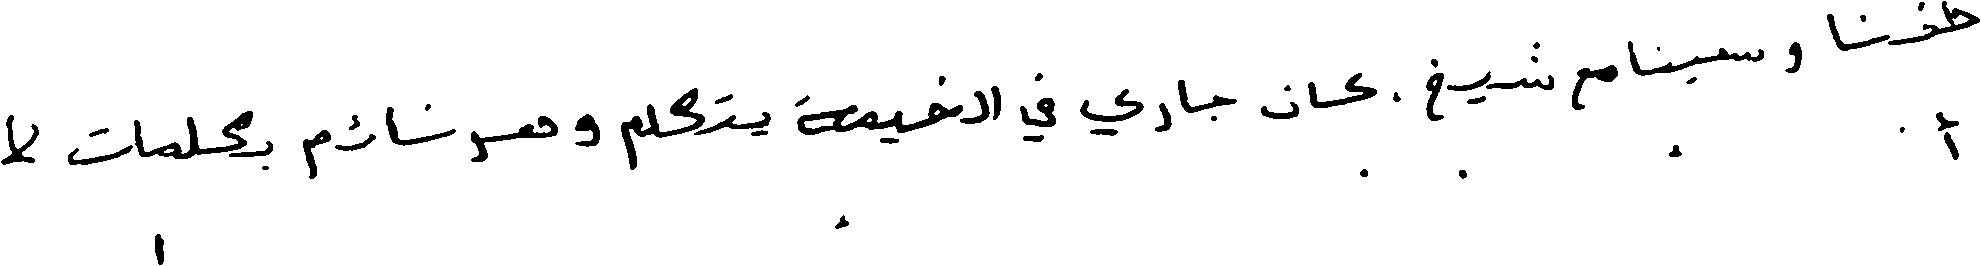 طفنا وسعينا مع شيخ . كان جاري في الخيمة يتكلم وهو نائم بكلمات لا